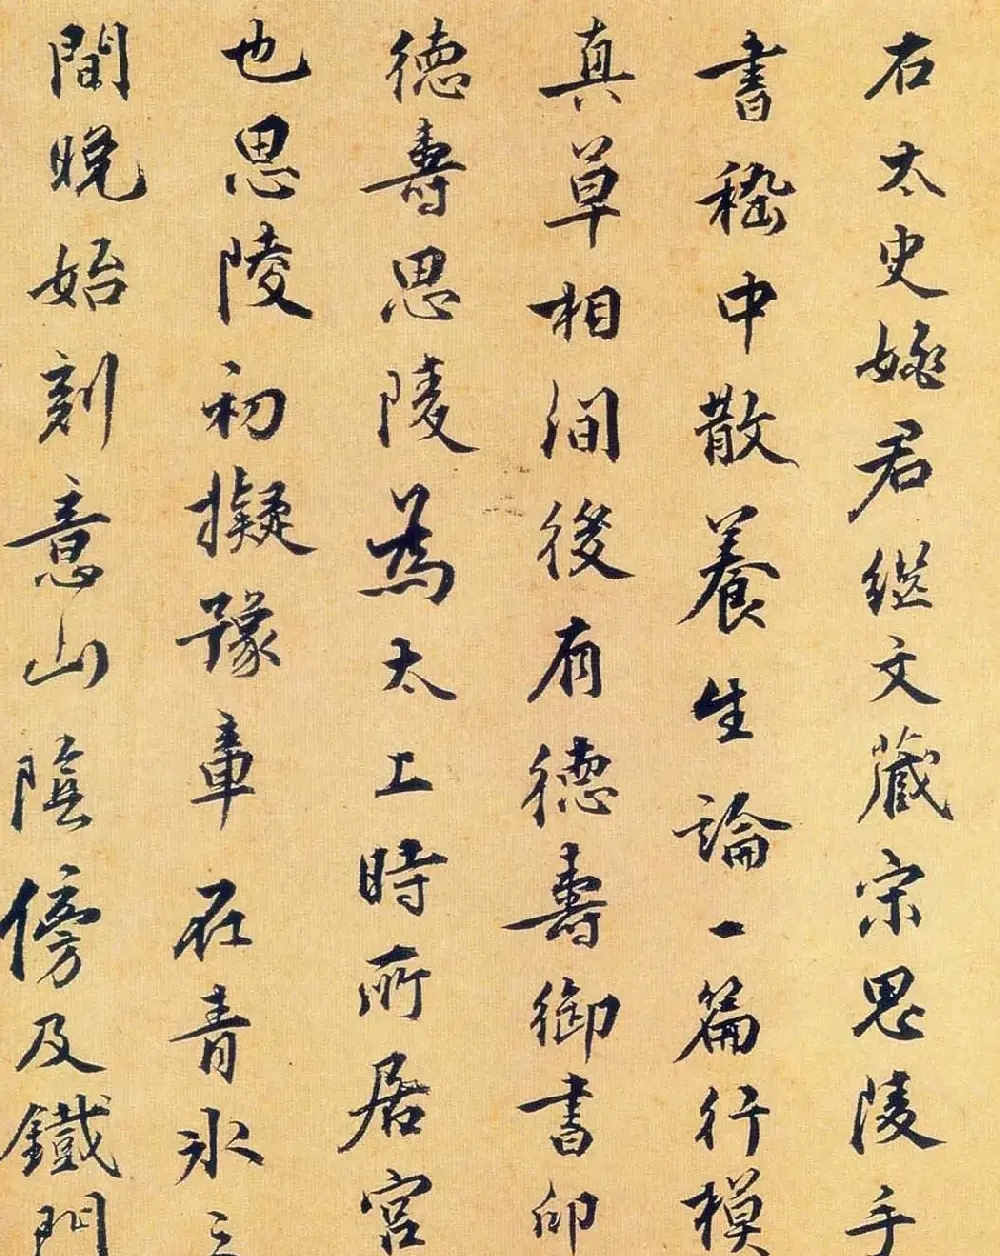 右太史姚君继文藏宋思陵手
書嵇中散養生論一篇行模
真草相间後有德壽御書印
德壽思陵為太上時所居宮
也思陵初擬豫章在青氷之
間晚始刻意山陰傍及鐵門